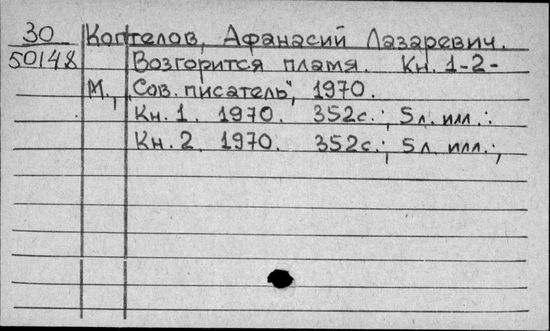 30 Коптелов, Афанасий Лазаревич.
50148 Возгорится пламя. Кн. 1-2-
М., „Сов. писатель", 1970.
Кн. 1. 1970. 352с.; 5л. илл.;
Кн. 2. 1970. 352с.; 5л илл.;